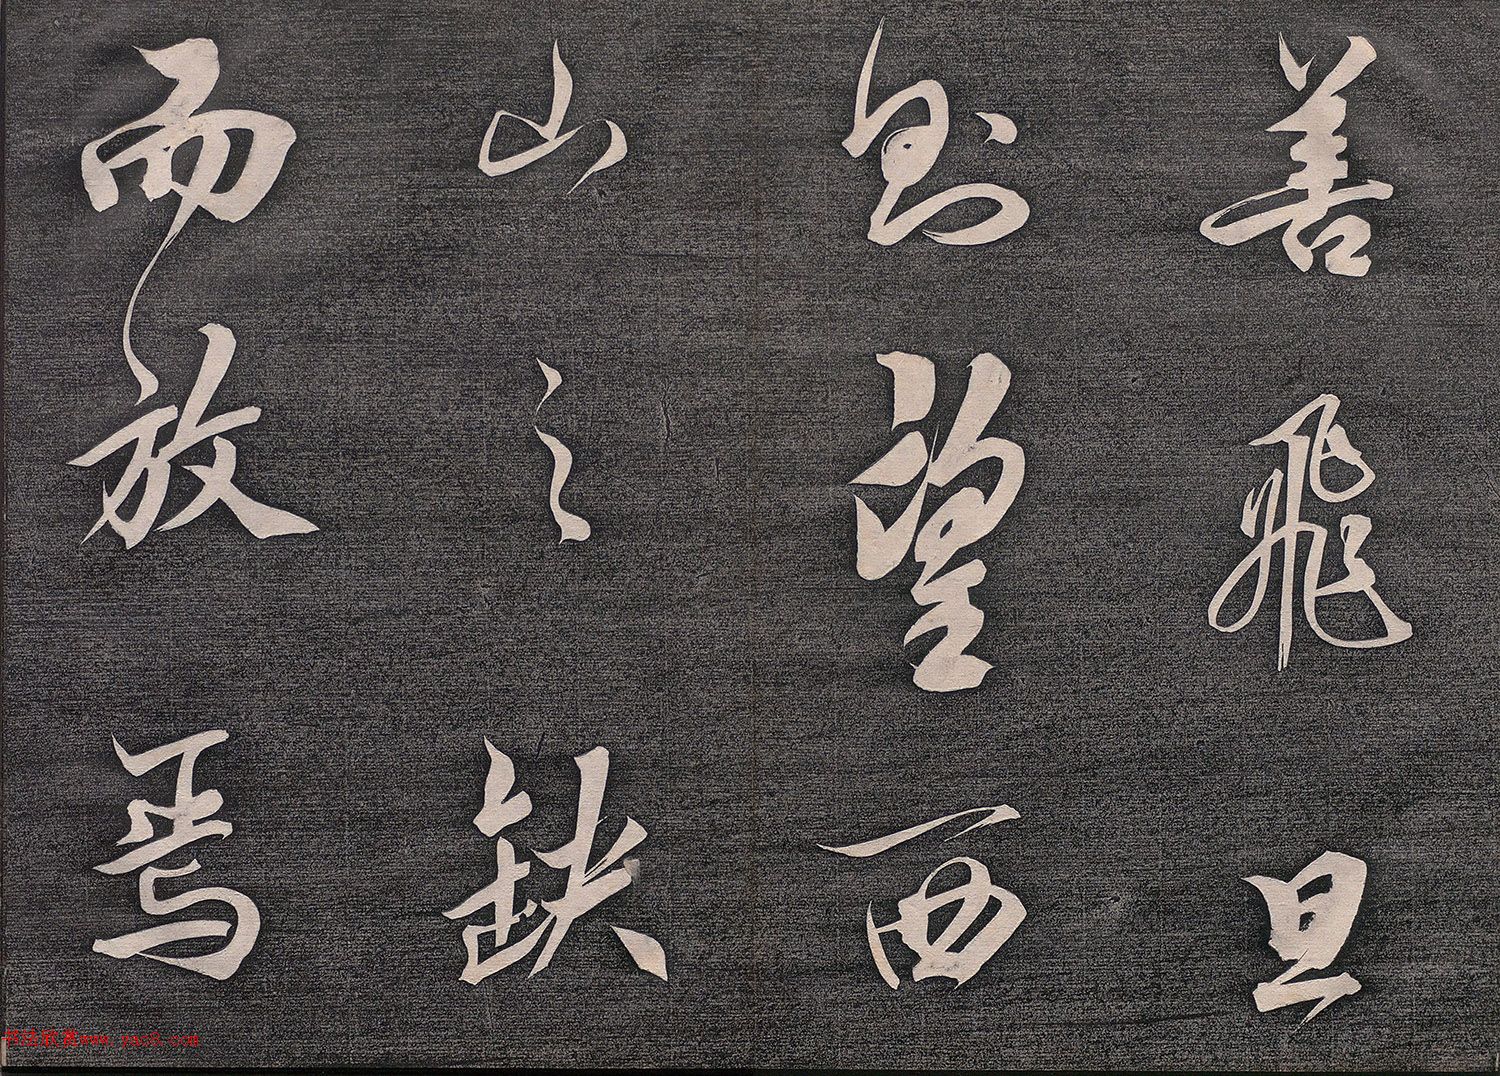 善飛旦
則望西
山之缺
而放焉
书法欣赏www.yac8.com